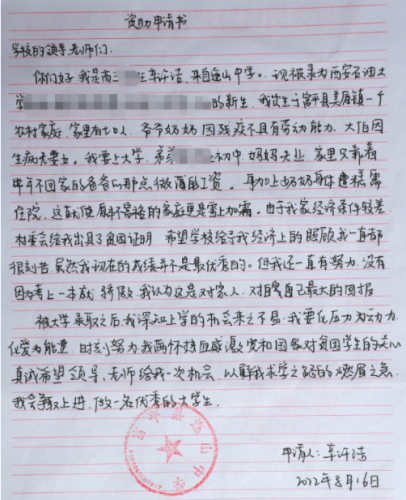 资助申请书
学校的领导、老师们:
你们好,我是高三 生辛许洁,来自 山中学。现被录为西安石油大
学 的新生,我出生于富平县美原镇一个
农村家庭,家里有七口人,爷爷奶奶因残疾不具有劳动能力,大伯因
生病 我要上大学, 初中,妈妈失业,家里只靠着
常年不回家的爸爸的那点微薄的工资,再加上奶奶身体 需
住院,这就使原本不富裕的家庭更是雪上加霜。由于我家经济条件较差
村委会给我出具了贫困证明,希望学校给予我经济上的照顾,我一直都
很刻苦,虽然我现在的成绩并不是最优秀的。但我还一直有努力,没有
因为考上一本就骄傲,我认为这是对家人、对自己最大的回报
被大学录取之后,我深知上学的机会来之不易,我要化压力为动力,
化爱为能量,时刻努力,我满怀热血感激党和国家对贫困学生的关心
真诚希望领导、老师给我一次机会,以解我求学之路的燃眉之急,
我会争取上进,做一名优秀的大学生。
申请人:辛许洁
2022年8月16日